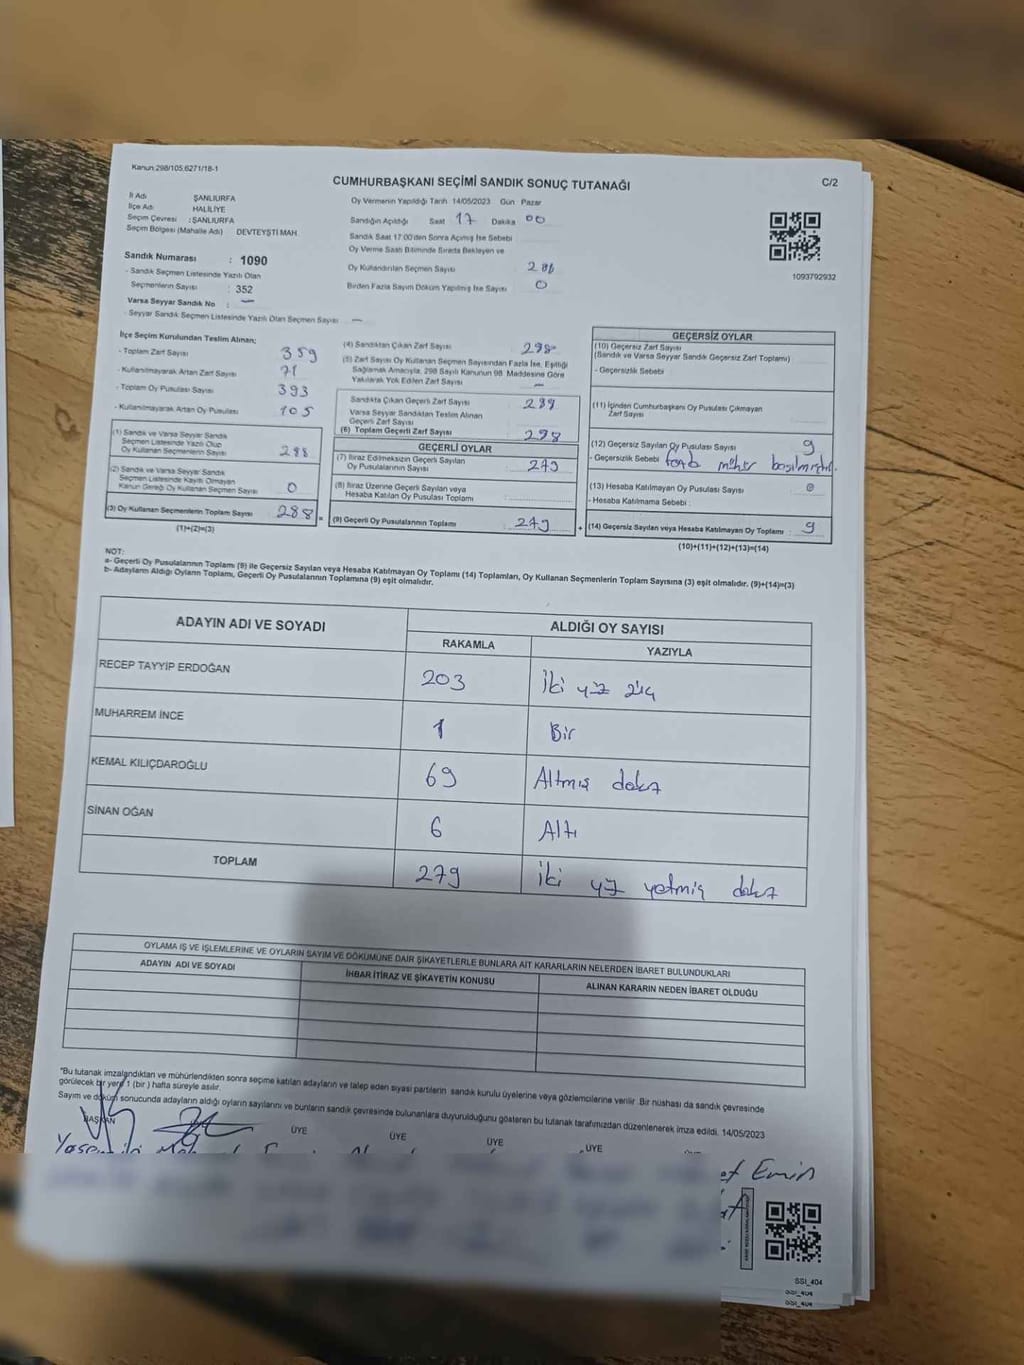 Kanun:298/105,6271/18-1
C/2
CUMHURBAŞKANI SEÇİMİ SANDIK SONUÇ TUTANAĞI
İl Adı ŞANLIURFA
İlçe Adı HALİLİYE
Seçim Çevresi : ŞANLIURFA
Seçim Bölgesi (Mahalle Adı) DEVTEYŞTİ MAH
Sandık Numarası : 1090
- Sandık Seçmen Listesinde Yazılı Olan
Seçmenlerin Sayısı : 352
Varsa Seyyar Sandık No : —
- Seyyar Sandık Seçmen Listesinde Yazılı Olan Seçmen Sayısı —
Oy Vermenin Yapıldığı Tarih 14/05/2023 Gün Pazar
Sandığın Açıldığı Saat 17 Dakika 00
Sandık Saat 17:00'den Sonra Açılmış İse Sebebi
Oy Verme Saati Bitiminde Sırada Bekleyen ve
Oy Kullandırılan Seçmen Sayısı
Birden Fazla Sayım Döküm Yapılmış İse Sayısı 0
1093792932
İlçe Seçim Kurulundan Teslim Alınan;
- Toplam Zarf Sayısı 359
- Kullanılmayarak Artan Zarf Sayısı 71
- Toplam Oy Pusulası Sayısı 393
- Kullanılmayarak Artan Oy Pusulası 105
(1) Sandık ve Varsa Seyyar Sandık
Seçmen Listesinde Yazılı Olup
Oy Kullanan Seçmenlerin Sayısı 288
(2) Sandık ve Varsa Seyyar Sandık
Seçmen Listesinde Kayıtlı Olmayan
Kanun Gereği Oy Kullanan Seçmen Sayısı 0
(3) Oy Kullanan Seçmenlerin Toplam Sayısı 288 =
(1)+(2)=(3)
(4) Sandıktan Çıkan Zarf Sayısı 298
(5) Zarf Sayısı Oy Kullanan Seçmen Sayısından Fazla İse, Eşitliği
Sağlamak Amacıyla, 298 Sayılı Kanunun 98. Maddesine Göre
Yakılarak Yok Edilen Zarf Sayısı —
Sandıkta Çıkan Geçerli Zarf Sayısı
Varsa Seyyar Sandıktan Teslim Alınan
Geçerli Zarf Sayısı
(6) Toplam Geçerli Zarf Sayısı 298
GEÇERLİ OYLAR
(7) İtiraz Edilmeksizin Geçerli Sayılan
Oy Pusulalarının Sayısı 279
(8) İtiraz Üzerine Geçerli Sayılan veya
Hesaba Katılan Oy Pusulası Toplamı
(9) Geçerli Oy Pusulalarının Toplamı 279 +
GEÇERSİZ OYLAR
(10) Geçersiz Zarf Sayısı
(Sandık ve Varsa Seyyar Sandık Geçersiz Zarf Toplamı)
- Geçersizlik Sebebi
(11) İçinden Cumhurbaşkanı Oy Pusulası Çıkmayan
Zarf Sayısı
(12) Geçersiz Sayılan Oy Pusulası Sayısı 9
- Geçersizlik Sebebi mühür basılmıştır.
(13) Hesaba Katılmayan Oy Pusulası Sayısı 0
- Hesaba Katılmama Sebebi :
(14) Geçersiz Sayılan veya Hesaba Katılmayan Oy Toplamı : 9
(10)+(11)+(12)+(13)=(14)
NOT:
a- Geçerli Oy Pusulalarının Toplamı (9) ile Geçersiz Sayılan veya Hesaba Katılmayan Oy Toplamı (14) Toplamları, Oy Kullanan Seçmenlerin Toplam Sayısına (3) eşit olmalıdır. (9)+(14)=(3)
b- Adayların Aldığı Oyların Toplamı, Geçerli Oy Pusulalarının Toplamına (9) eşit olmalıdır.
ADAYIN ADI VE SOYADI ALDIĞI OY SAYISI
RAKAMLA YAZIYLA
RECEP TAYYİP ERDOĞAN 203 İki yüz üç
MUHARREM İNCE 1 Bir
KEMAL KILIÇDAROĞLU 69 Altmış dokuz
SİNAN OĞAN 6 Altı
TOPLAM 279 İki yüz yetmiş dokuz
OYLAMA İŞ VE İŞLEMLERİNE VE OYLARIN SAYIM VE DÖKÜMÜNE DAİR ŞİKAYETLERLE BUNLARA AİT KARARLARIN NELERDEN İBARET BULUNDUKLARI
ADAYIN ADI VE SOYADI İHBAR İTİRAZ VE ŞİKAYETİN KONUSU ALINAN KARARIN NEDEN İBARET OLDUĞU
"Bu tutanak imzalandıktan ve mühürlendikten sonra seçime katılan adayların ve talep eden siyasi partilerin sandık kurulu üyelerine veya gözlemcilerine verilir. Bir nüshası da sandık çevresinde
görülecek bir yere 1 (bir ) hafta süreyle asılır.
Sayım ve döküm sonucunda adayların aldığı oyların sayılarını ve bunların sandık çevresinde bulunanlara duyurulduğunu gösteren bu tutanak tarafımızdan düzenlenerek imza edildi. 14/05/2023
BAŞKAN ÜYE ÜYE ÜYE ÜYE
Emin
SSI_404
SSI_404
SSI_404